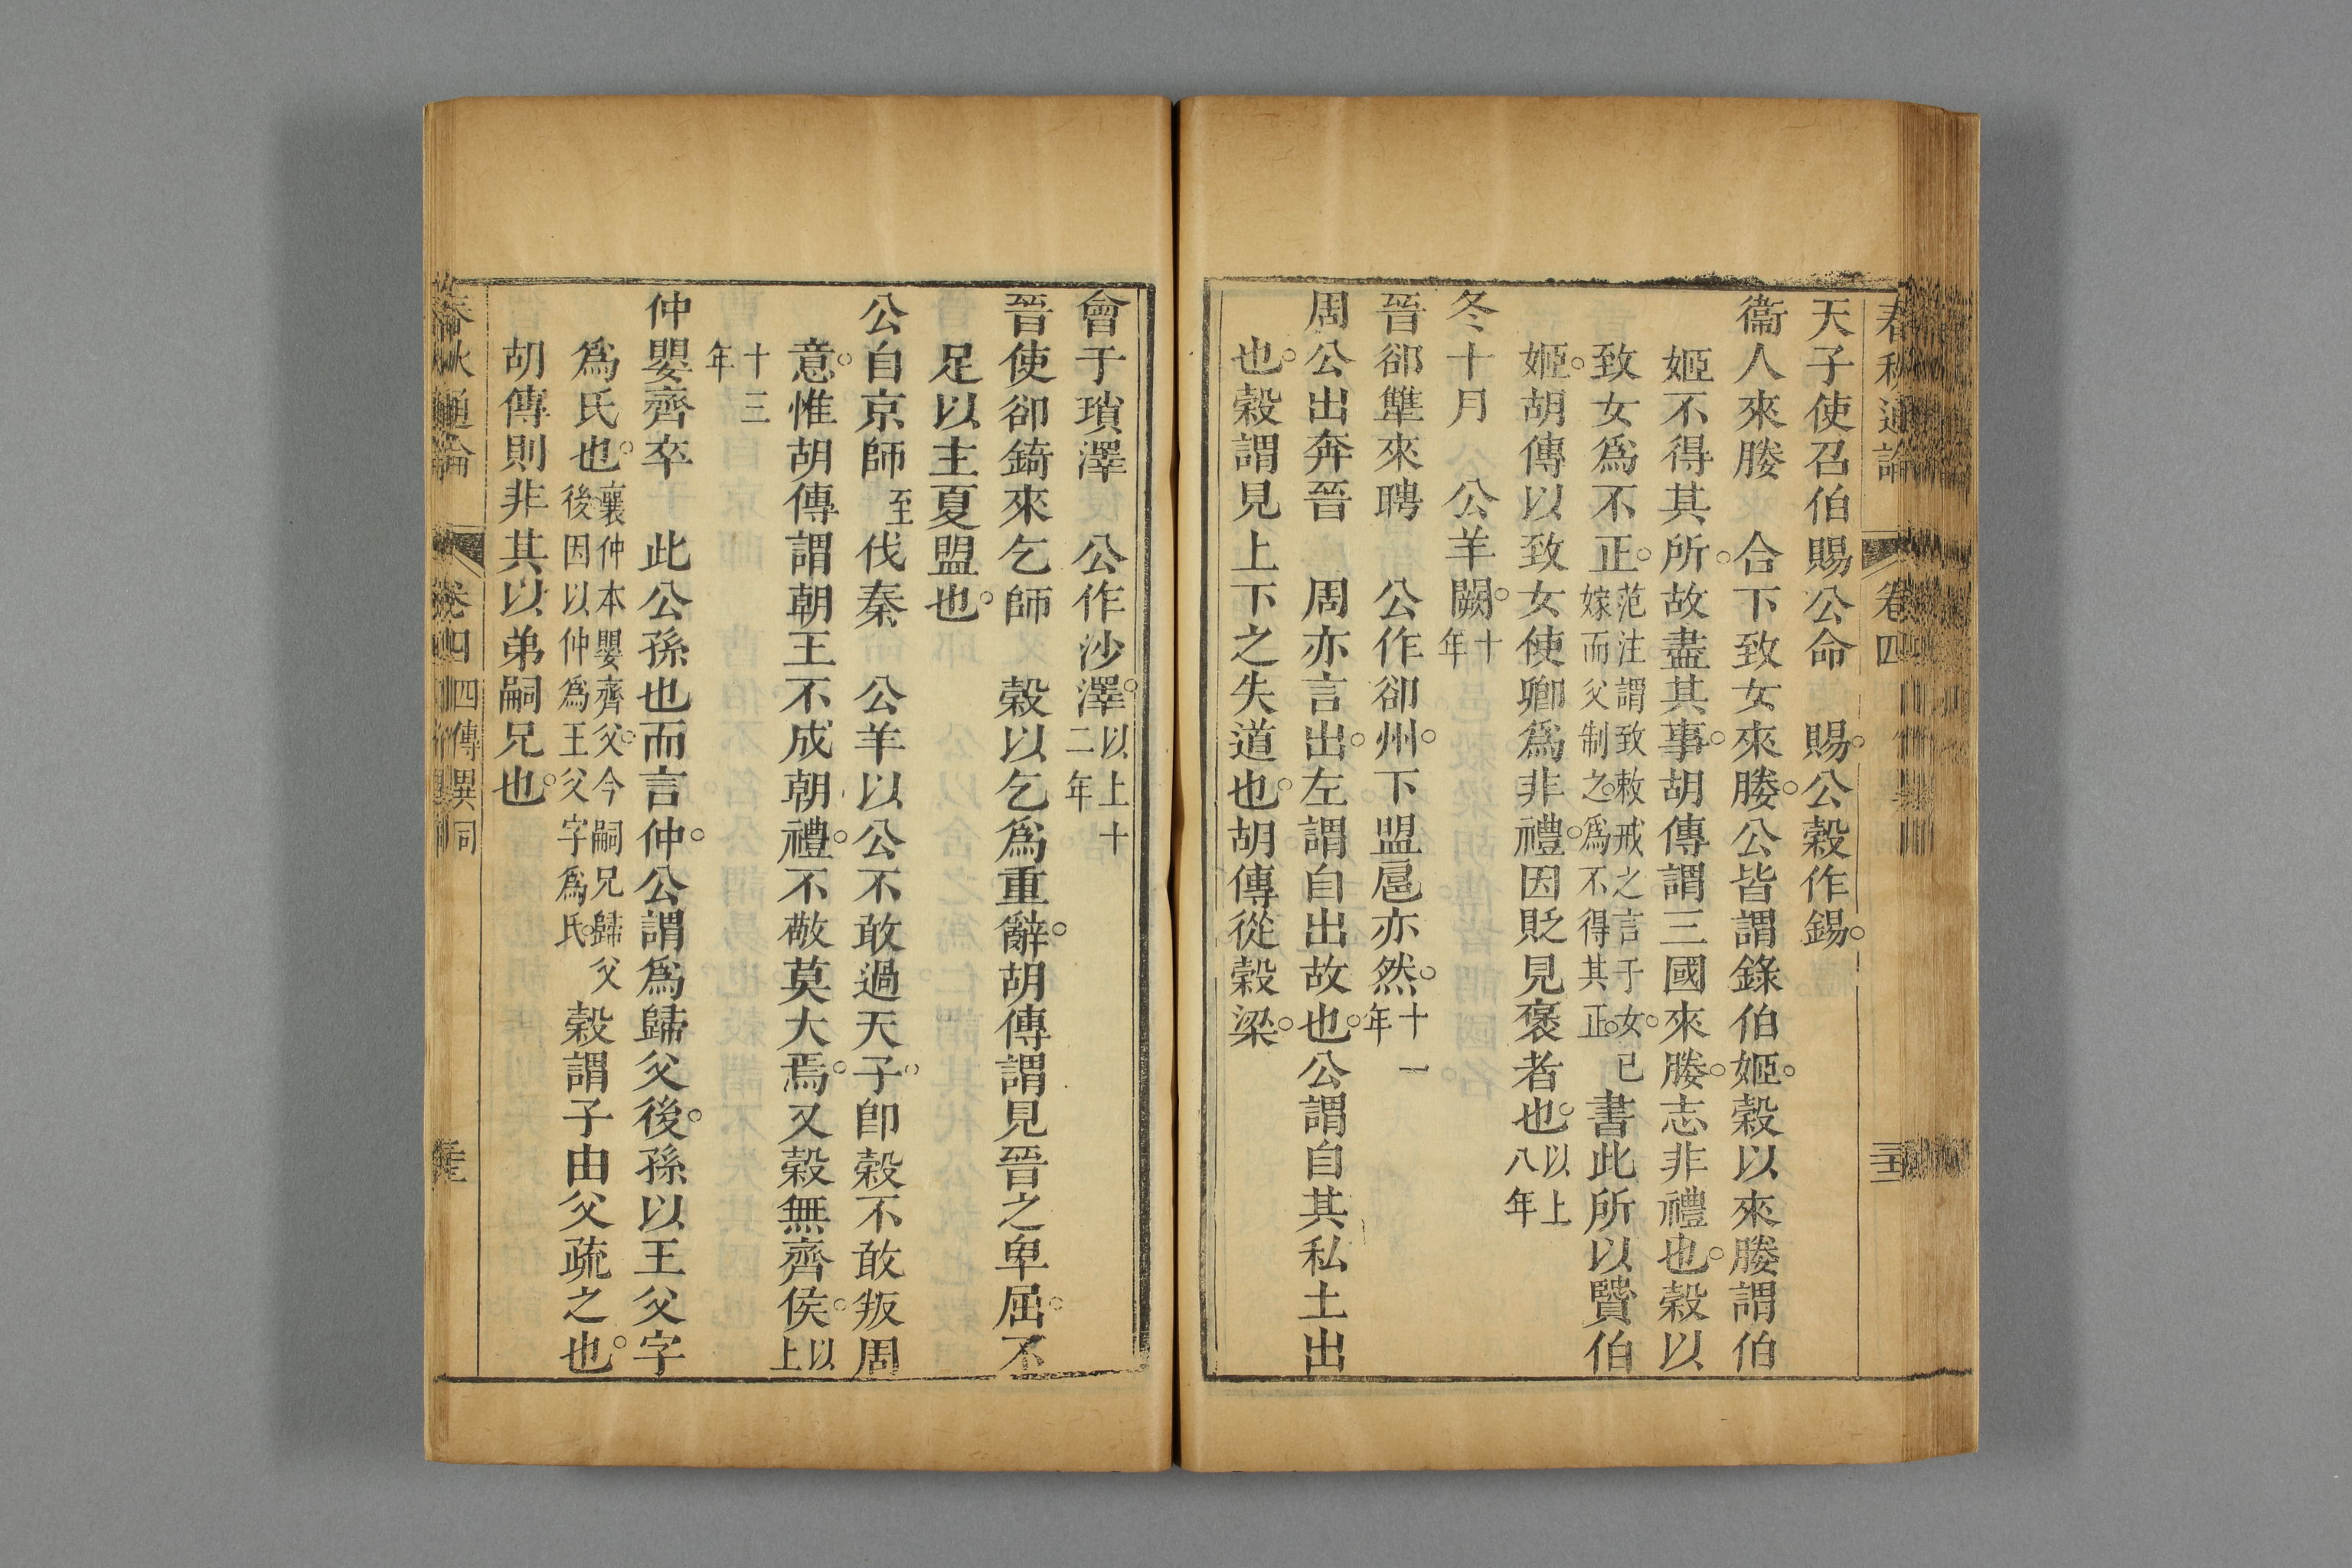 春秋通論 卷四
天子使召伯賜公命 賜公穀作錫
衞人來媵 合下致女來媵公皆謂錄伯姬穀以來媵謂伯
姬不得其所故盡其事胡傳謂三國來媵志非禮也穀以
致女爲不正范注謂致敕戒之言于女已嫁而父制之爲不得其正書此所以賢伯
姬胡傳以致女使卿爲非禮因貶見褒者也以上八年
冬十月 公羊闕十年
晉郤犨來聘 公作卻州下盟扈亦然十一年
周公出奔晉 周亦言出左謂自出故也公謂自其私土出
也穀謂見上下之失道也胡傳從穀梁
會于瑣澤 公作沙澤以上十二年
晉使卻錡來乞師 穀以乞爲重辭胡傳謂見晉之卑屈不
足以主夏盟也
公自京師至伐秦 公羊以公不敢過天子卽穀不敢叛周
意惟胡傳謂朝王不成朝禮不敬莫大焉又穀無齊侯以上
十三年
仲嬰齊卒 此公孫也而言仲公謂爲歸父後孫以王父字
爲氏也襄仲本嬰齊父今嗣兄歸父後因以仲爲王父字爲氏穀謂子由父疏之也
胡傳則非其以弟嗣兄也
春秋通論 卷四 四傳異同